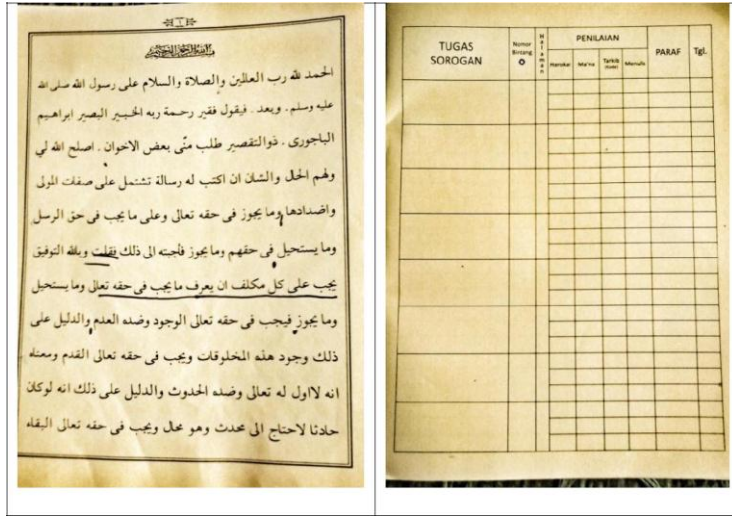 ١
بسم الله الرحمن الرحيم
الحمد لله رب العالمين والصلاة والسلام على رسول الله صلى الله
عليه وسلم . وبعد . فيقول فقير رحمة ربه الخبير البصير ابراهيم
الباجورى . ذوالتقصير طلب منّى بعض الاخوان . اصلح الله لي
ولهم الحال والشان ان اكتب له رسالة تشتمل على صفات المولى
واضدادها وما يجوز فى حقه تعالى وعلى ما يجب فى حق الرسل
وما يستحيل فى حقهم وما يجوز فأجبته الى ذلك فقلت وبالله التوفيق
يجب على كل مكلف ان يعرف ما يجب فى حقه تعالى وما يستحيل
وما يجوز فيجب فى حقه تعالى الوجود وضده العدم والدليل على
ذلك وجود هذه المخلوقات ويجب فى حقه تعالى القدم ومعناه
انه لااول له تعالى وضده الحدوث والدليل على ذلك انه لوكان
حادثا لاحتاج الى محدث وهو محال ويجب فى حقه تعالى البقاء
TUGAS SOROGAN
Nomor Bintang
Halaman
PENILAIAN
Harokat Ma'na Tarkib Menulis
PARAF
Tgl.